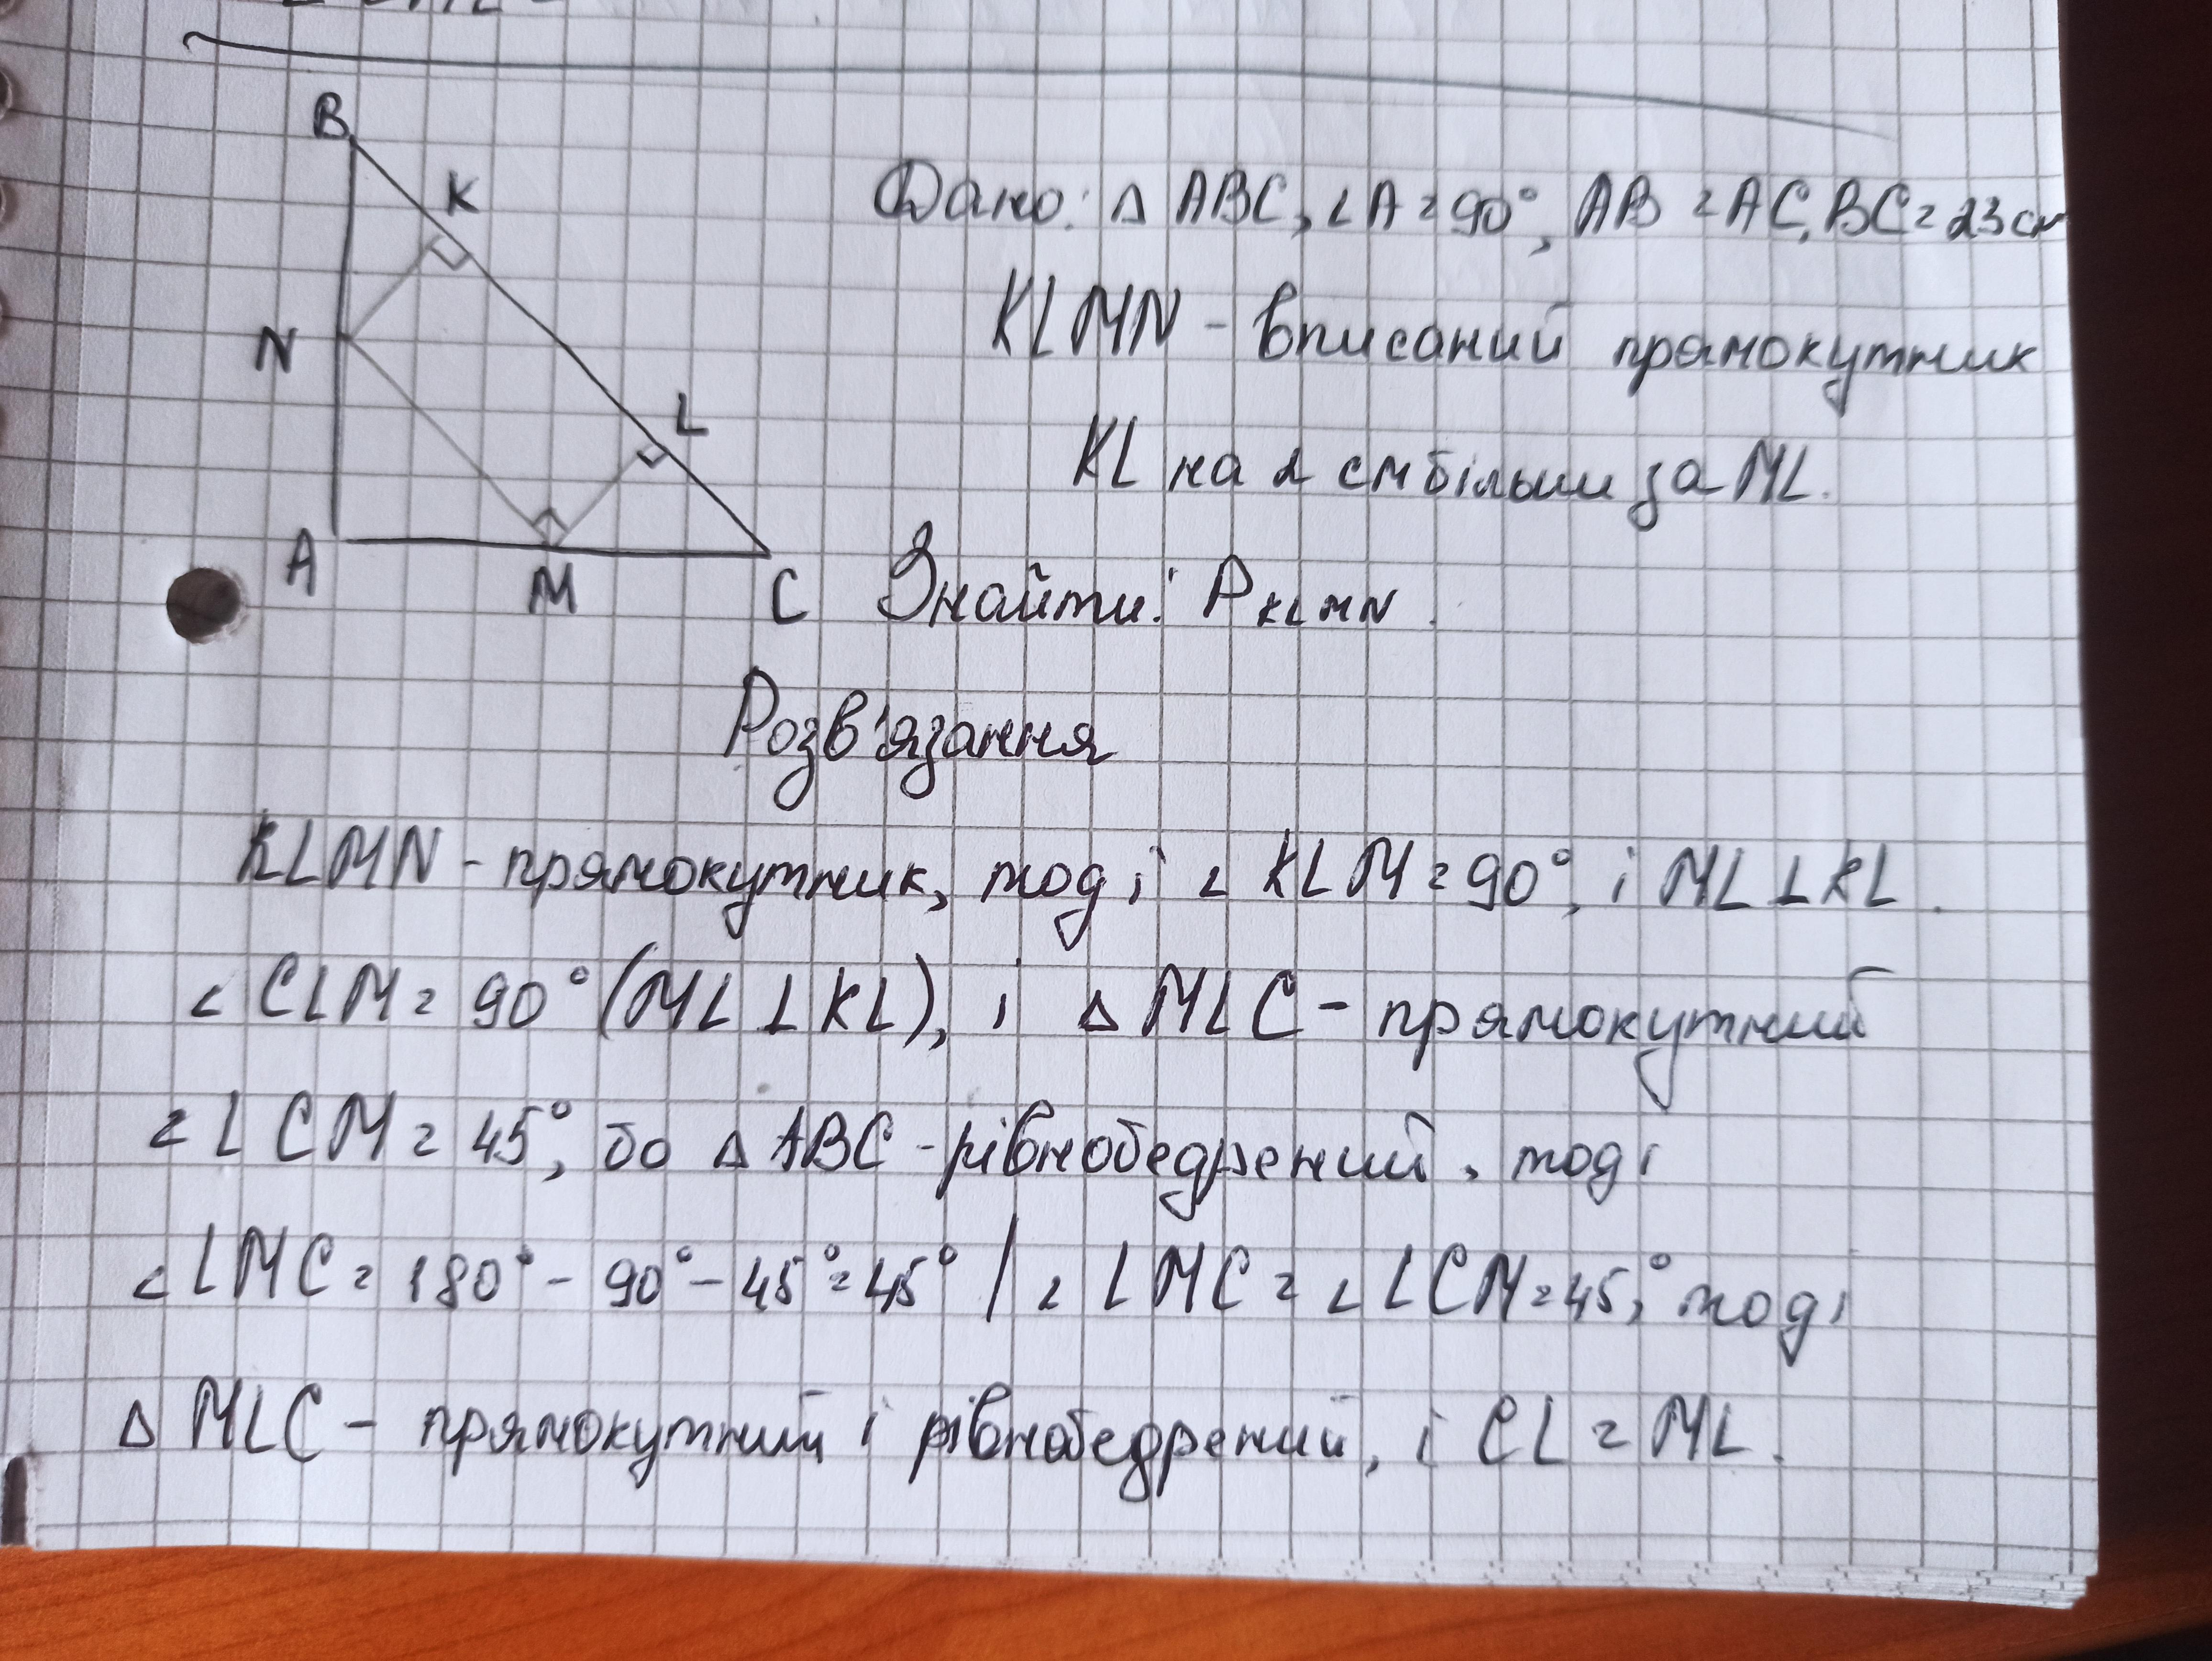 B
K
N
L
A
M
C
Дано: △ ABC, ∠A = 90°, AB = AC, BC = 23 см
KLMN - вписаний прямокутник
KL на 2 см більши за ML.
Знайти: P KLMN.
Розв'язання
KLMN - прямокутник, тоді ∠ KLM = 90°, і ML ⊥ KL.
∠ CLM = 90° (ML ⊥ KL), і △ MLC - прямокутний
∠ LCM = 45°, бо △ ABC - рівнобедрений, тоді
∠ LMC = 180° - 90° - 45° = 45° / ∠ LMC = ∠ LCM = 45°, тоді
△ MLC - прямокутний і рівнобедрений, і CL = ML.